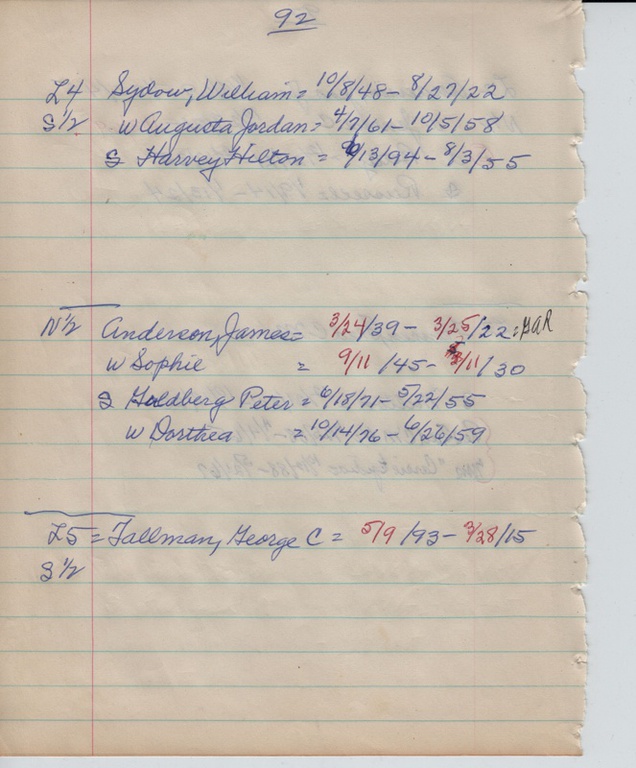 92
L4 Sydow, William = 10/8/48 - 8/27/22
S 1/2 w Augusta Jordan = 4/7/61 - 10/5/58
S Harvey Hilton = 9/13/94 - 8/3/55
N 1/2 Anderson, James = 3/24/39 - 3/25/22 = GAR
w Sophie = 9/11/45 - /11/30
S Goldberg Peter = 6/18/71 - 5/22/55
w Dorthea = 10/14/76 - 6/26/59
L5 = Tallman, George C = 5/9/93 - 3/28/15
S 1/2